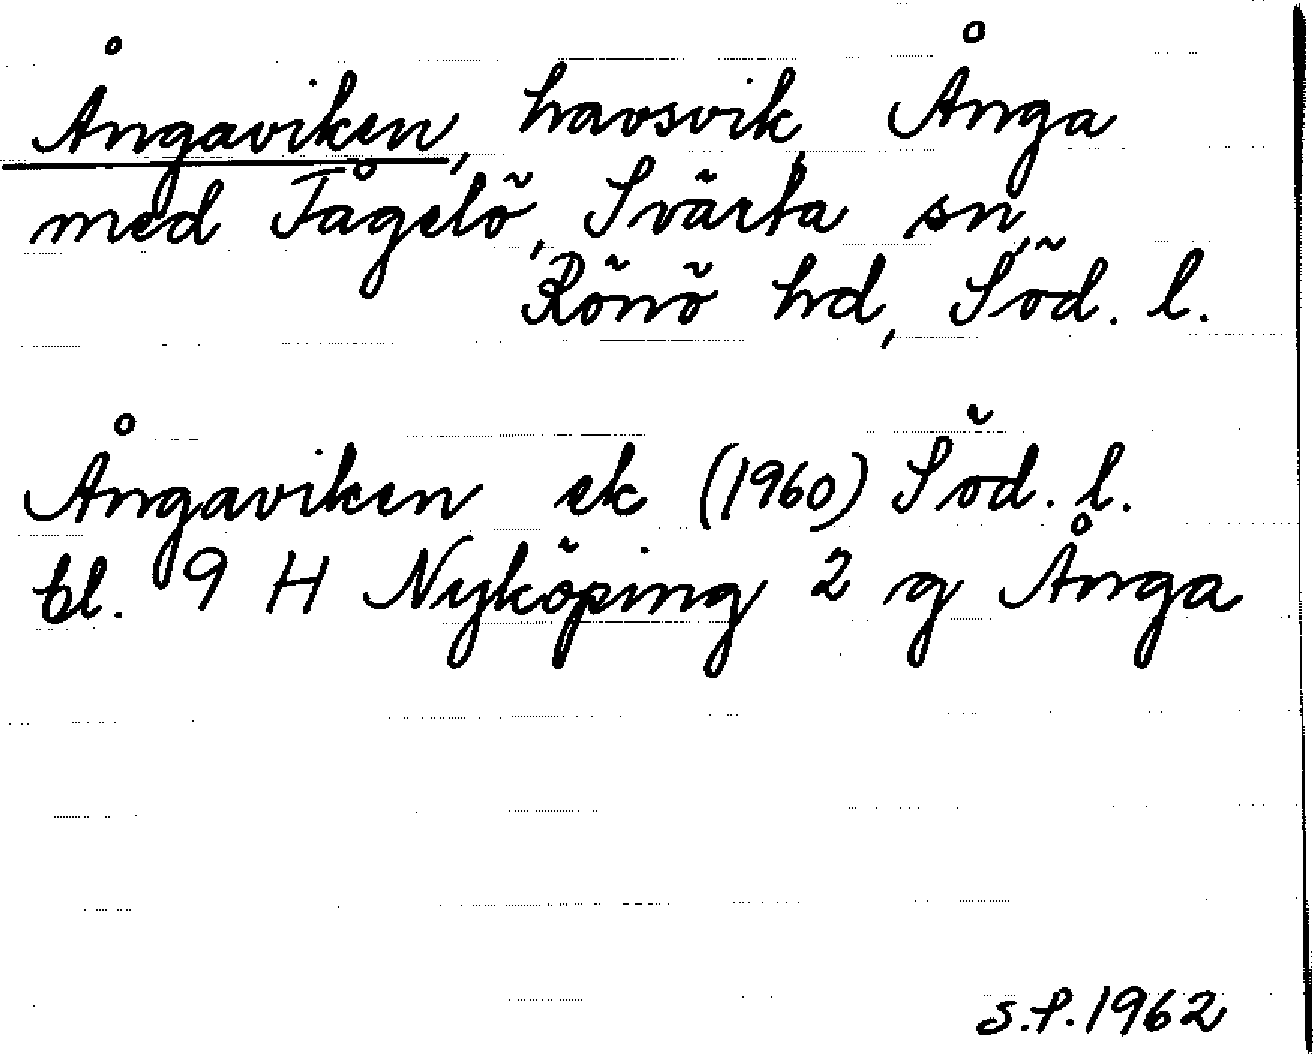 Ångaviken, havsvik, Ånga
med Fågelö, Svärta sn,
Rönö hd, Söd. l.
Ångaviken ek (1960) Söd. l.
bl. 9 H Nyköping 2 g Ånga
S.P. 1962